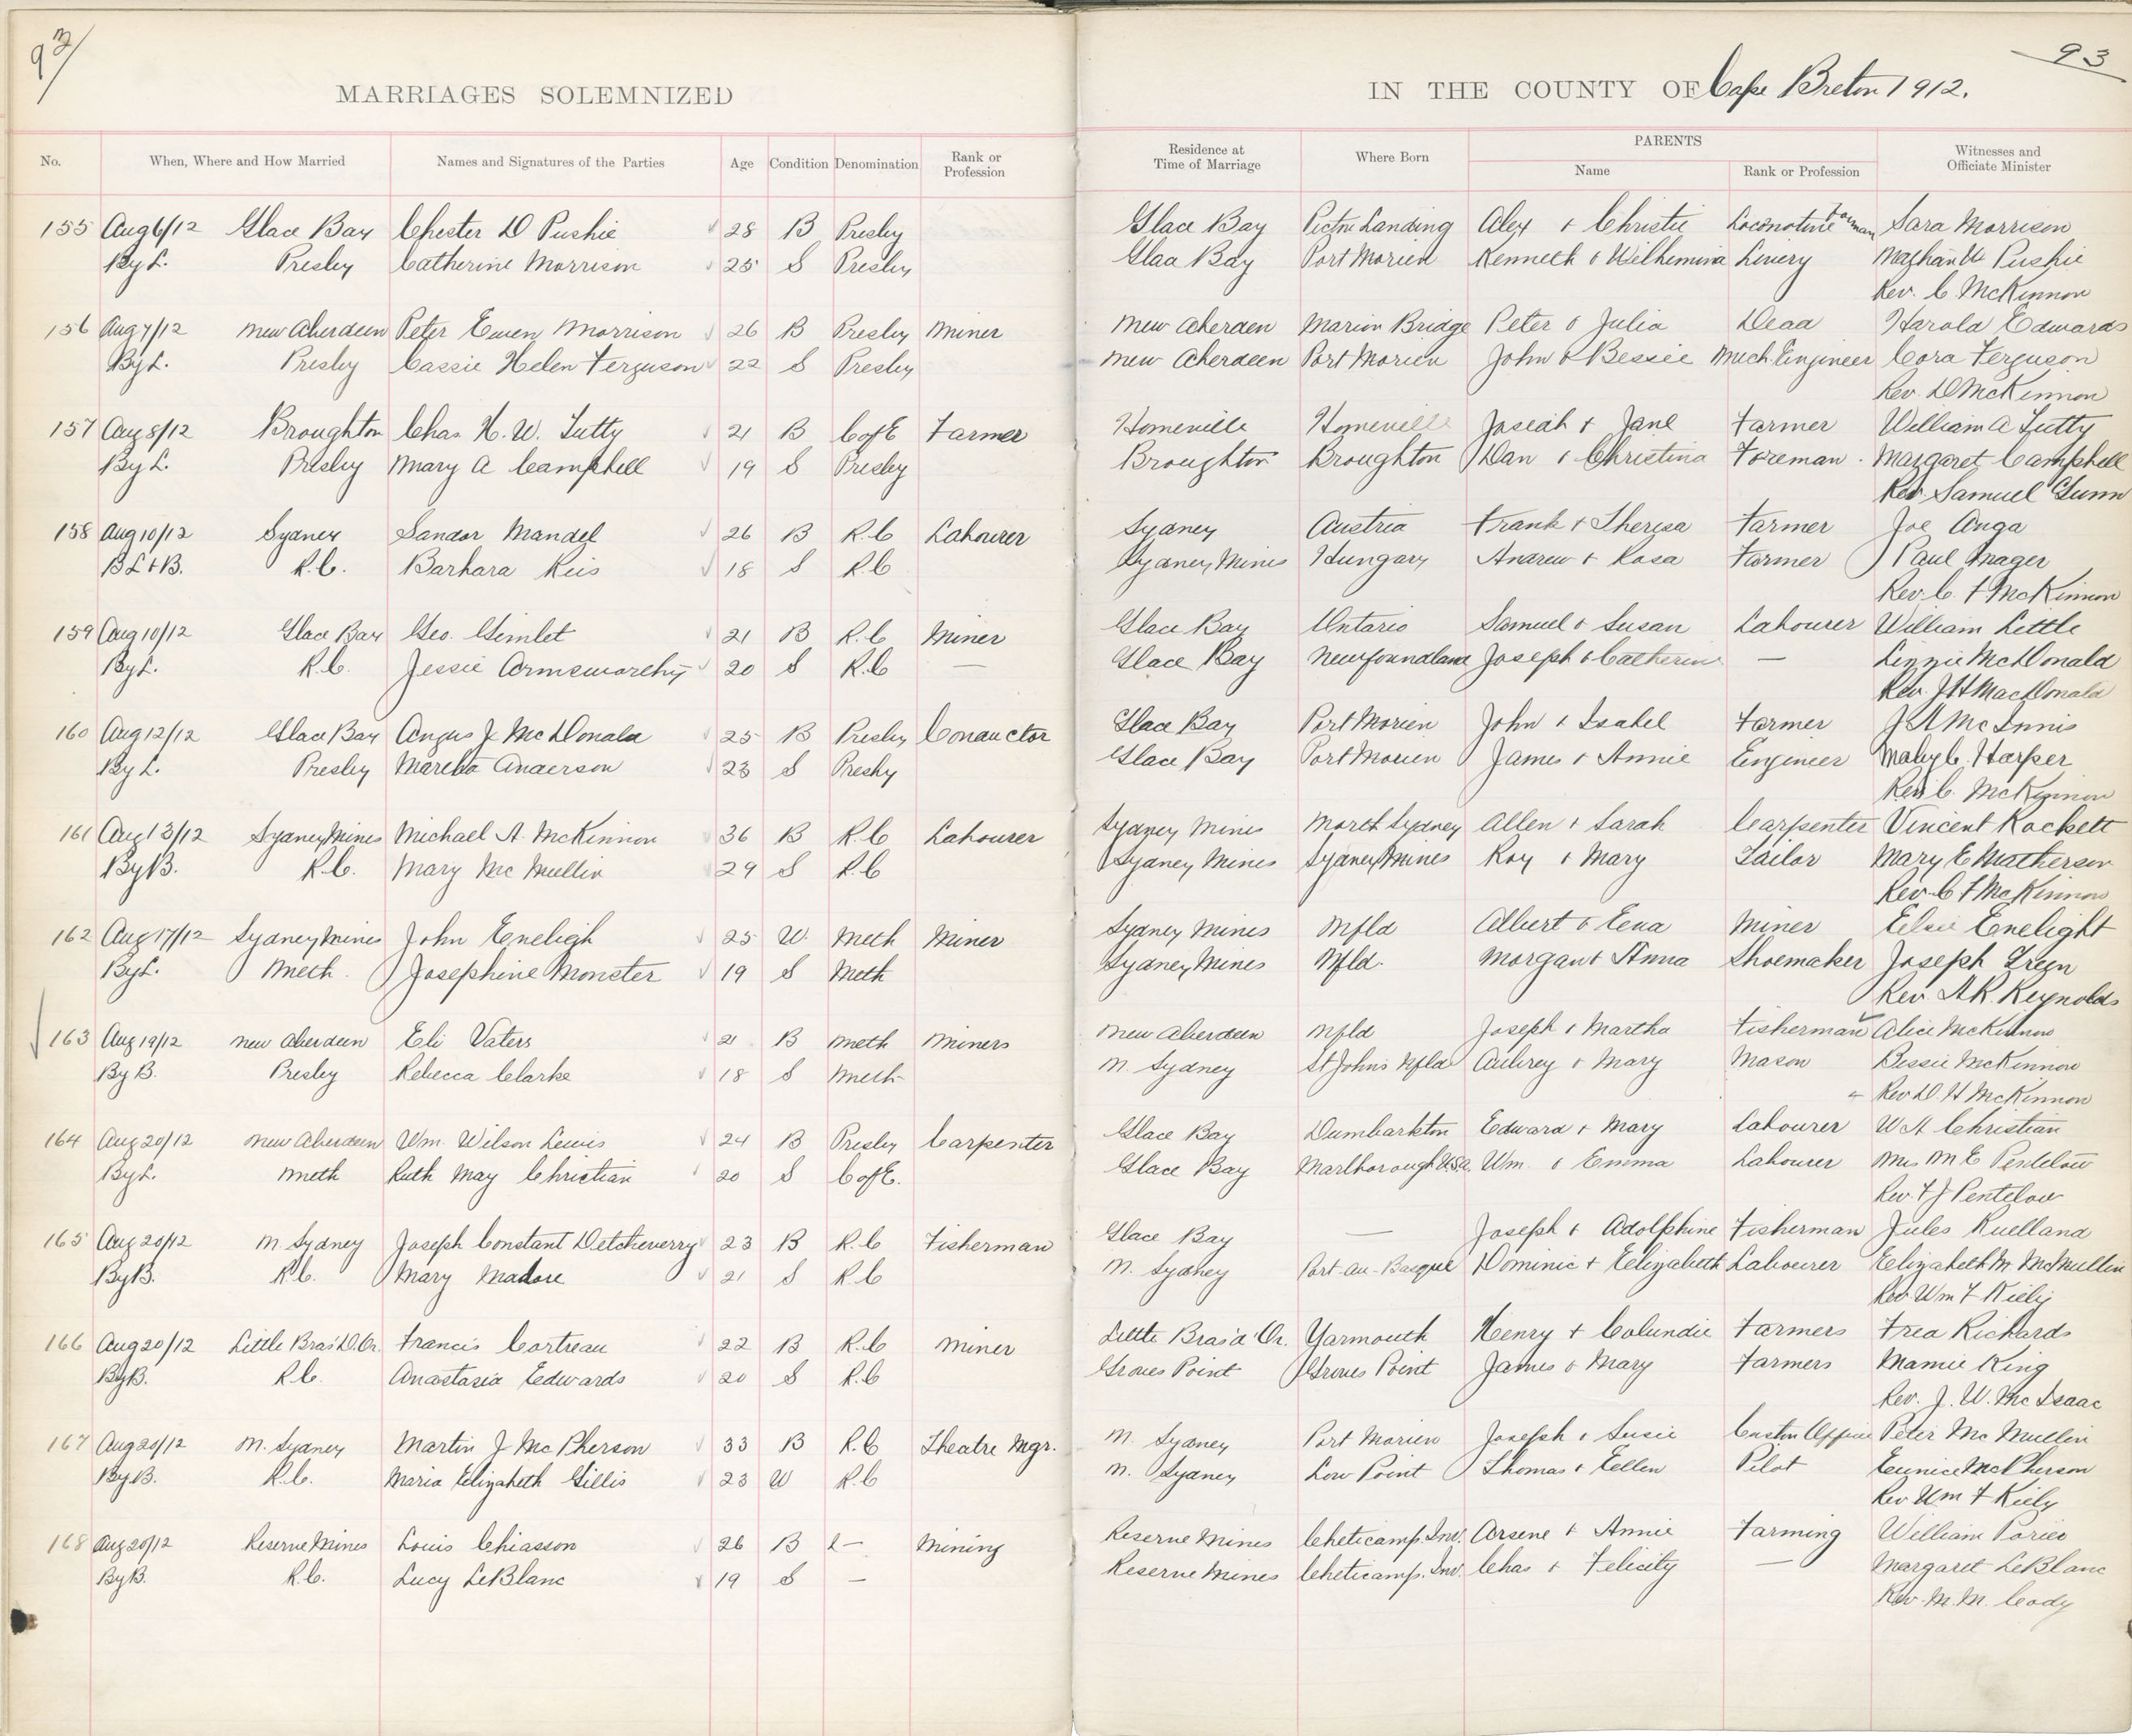 93
93
MARRIAGES SOLEMNIZED IN THE COUNTY OF Cape Breton 1912.
No. When, Where and How Married Names and Signatures of the Parties Age Condition Denomination Rank or Profession Residence at Time of Marriage Where Born PARENTS Name Rank or Profession Witnesses and Officiate Minister
155 Aug 6/12 Glace Bay Chester D Pushie 28 B Presby Glace Bay Pictou Landing Alex + Christie Locomotive Sara Morrison
By L. Presby Catherine Morrison 25 S Presby Glace Bay Port Morien Kenneth & Wilhemina Livery Pushie
Rev. C. McKinnon
156 Aug 7/12 New Aberdeen Peter Ewen Morrison 26 B Presby Miner New Aberdeen Marion Bridge Peter & Julia Dead Harold Edwards
By L. Presby Cassie Helen Ferguson 22 S Presby New Aberdeen Port Morien John & Bessie Mech. Engineer Cora Ferguson
Rev. D McKinnon
157 Aug 8/12 Broughton Chas H. W. Tutty 21 B C of E Farmer Homeville Homeville Josiah + Jane Farmer William A Tutty
By L. Presby Mary A Campbell 19 S Presby Broughton Broughton Dan & Christina Foreman Margaret Campbell
Rev. Samuel Gunn
158 Aug 10/12 Sydney Sandor Mandel 26 B R.C Labourer Sydney Austria Frank + Theresa Farmer Joe Auga
B L + B. R.C. Barbara Reis 18 S R.C Sydney Mines Hungary Andrew + Rosa Farmer Paul Mager
Rev. C. F McKinnon
159 Aug 10/12 Glace Bay Geo. Gimlet 21 B R.C Miner Glace Bay Ontario Samuel & Susan Labourer William Little
By L. R.C. Jessie Armsworthy 20 S R.C — Glace Bay Newfoundland Joseph & Catherine — Linzie McDonald
Rev. J H MacDonald
160 Aug 12/12 Glace Bay Angus J McDonald 25 B Presby Conductor Glace Bay Port Morien John & Isabel Farmer J A McInnis
By L. Presby Martha Anderson 23 S Presby Glace Bay Port Morien James + Annie Engineer Mary C. Harper
Rev. C. McKinnon
161 Aug 13/12 Sydney Mines Michael A. McKinnon 36 B R.C Labourer Sydney Mines North Sydney Allen + Sarah Carpenter Vincent Rockett
By B. R.C. Mary McMullin 29 S R.C Sydney Mines Sydney Mines Roy & Mary Tailor Mary E Matherson
Rev. C F McKinnon
162 Aug 17/12 Sydney Mines John Eneligh 25 W. Meth Miner Sydney Mines Nfld Albert & Miner Elsie Enelight
By L. Meth. Josephine Monster 19 S Meth Sydney Mines Nfld. Morgan + Anna Shoemaker Joseph
Rev. A.R. Reynolds
163 Aug 19/12 New Aberdeen Eli Vaters 21 B Meth Miners New Aberdeen Nfld Joseph & Martha Fisherman Alice McKinnon
By B. Presby Rebecca Clarke 18 S Meth N. Sydney St Johns Nfld Aubrey & Mary Mason Bessie McKinnon
Rev D. H McKinnon
164 Aug 20/12 New Aberdeen Wm. Wilson Lewis 24 B Presby Carpenter Glace Bay Dumbarkton Edward + Mary Labourer W A Christian
By L. Meth Ruth May Christian 20 S C of E. Glace Bay Marlborough U.S.A. Wm. & Emma Labourer Mrs M E Pentelow
Rev. F J Pentelow
165 Aug 20/12 N. Sydney Joseph Constant Detcheverry 23 B R.C Fisherman Glace Bay — Joseph + Adolphine Fisherman Jules Ruelland
By B. R.C. Mary Madore 21 S R.C N. Sydney Port-au-Basque Dominic + Elizabeth Labourer Elizabeth M McMullin
Rev Wm F Kiely
166 Aug 20/12 Little Bras D.Or. Francis Cortreau 22 B R.C Miner Little Bras d'Or. Yarmouth Henry + Colundie Farmers Fred Richards
By B. R.C. Anastasia Edwards 20 S R.C Groves Point Groves Point James & Mary Farmers Mamie King
Rev. J. W. McIsaac
167 Aug 20/12 N. Sydney Martin J McPherson 33 B R.C Theatre Mgr. N. Sydney Port Morien Joseph & Susie Custom Office Peter McMullin
By B. R.C. Maria Elizabeth Gillis 23 W R.C N. Sydney Low Point Thomas & Ellen Pilot Eunice McPherson
Rev Wm F Kiely
168 Aug 20/12 Reserve Mines Louis Chiasson 26 B — Mining Reserve Mines Cheticamp. Inv. Arsene + Annie Farming William
By B. R.C. Lucy LeBlanc 19 S — Reserve Mines Cheticamp. Inv. Chas + Felicity — Margaret LeBlanc
Rev. M. M. Coady